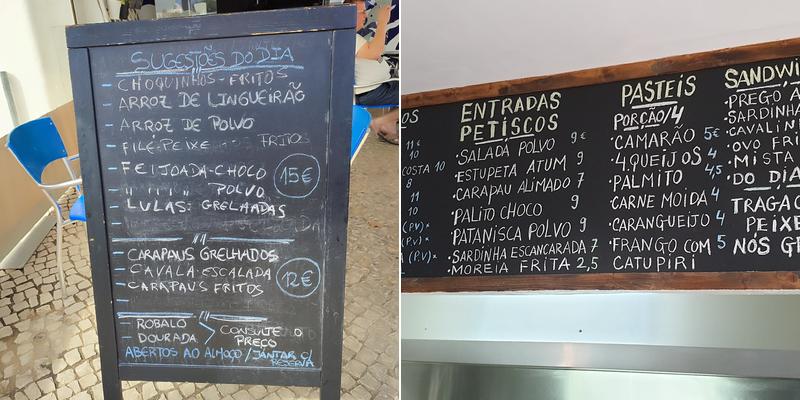 SUGESTÕES DO DIA
- CHOQUINHOS - FRITOS
- ARROZ DE LINGUEIRÃO
ARROZ DE POLVO
- FILE-PEIXE FRITOS
- FEIJOADA-CHOCO
" " " POLVO
- LULAS: GRELHADAS
15€
- CARAPAUS GRELHADOS
- CAVALA-ESCALADA
- CARAPAUS FRITOS
12€
- ROBALO
DOURADA
CONSULTE O
PREÇO
ABERTOS AO ALMOÇO / JANTAR C/
RESERVA
OS
11€
10
COSTA 10
8
11
10
(P.V)*
(P.V)*
(P.V)*
ENTRADAS
PETISCOS
·SALADA POLVO 9€
·ESTUPETA ATUM 9
·CARAPAU ALIMADO 7
·PALITO CHOCO 9
·PATANISCA POLVO 9
·SARDINHA ESCANCARADA 7
·MOREIA FRITA 2,5
PASTEIS
PORÇÃO/4
·CAMARÃO 5€
·4 QUEIJOS 4
·PALMITO 4,5
·CARNE MOIDA 4
·CARANGUEIJO 4
·FRANGO COM 5
CATUPIRI
SANDWI
·PREGO
·SARDINHA
·CAVALIN
·OVO FRI
·MISTA
·DO DIA
TRAGA
PEIXE
NÓS GR